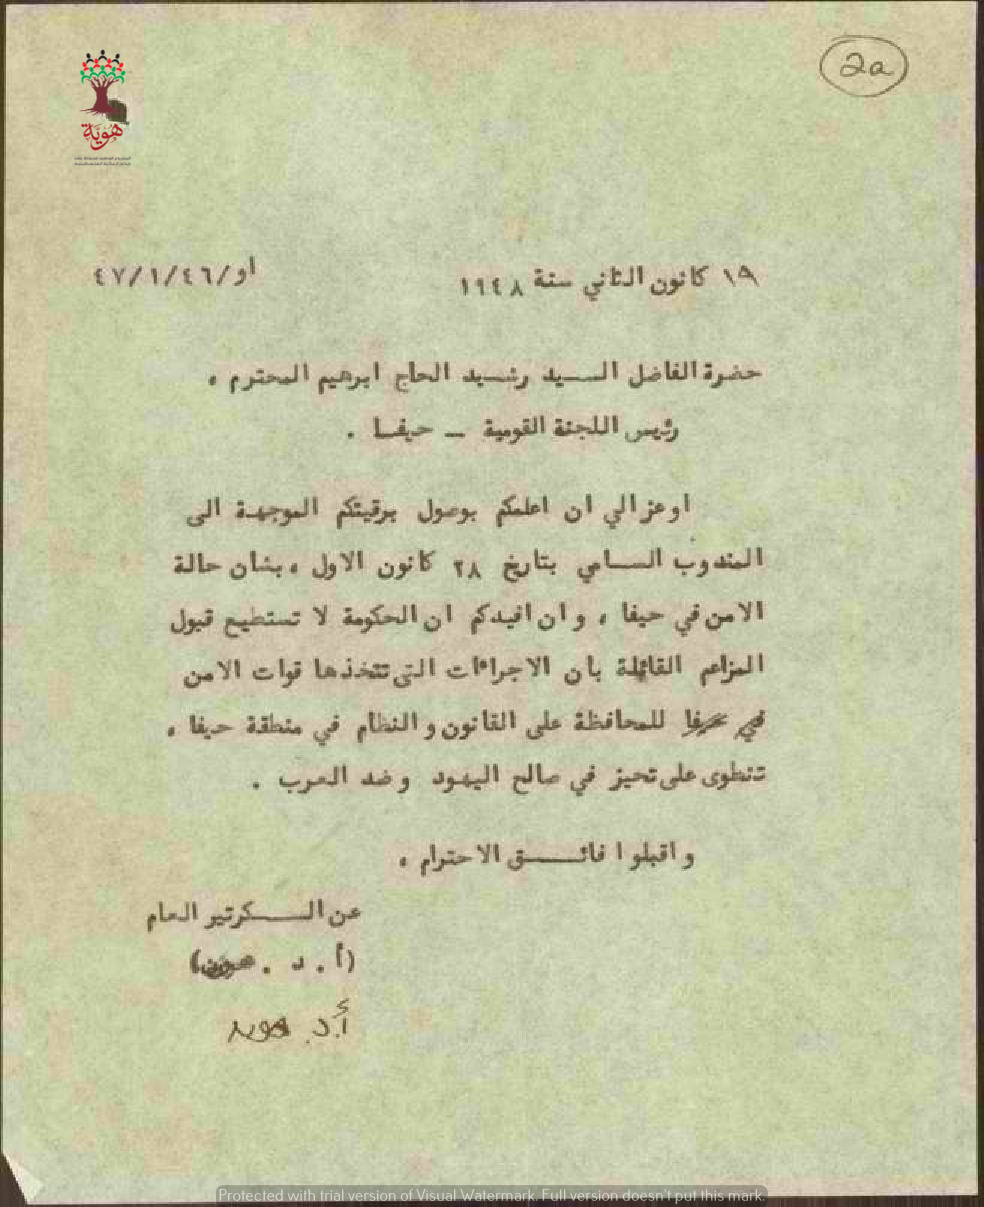 2a
هوية
١٩ كانون الثاني سنة ١٩٤٨
او/٤٧/١/٤٦
حضرة الفاضل السيد رشيد الحاج ابرهيم المحترم ،
رئيس اللجنة القومية ـ حيفا .
اوعز الي ان اعلمكم بوصول برقيتكم الموجهة الى
المندوب السامي بتاريخ ٢٨ كانون الاول ، بشان حالة
الامن في حيفا ، وان افيدكم ان الحكومة لا تستطيع قبول
المزاعم القائلة بان الاجراءات التي تتخذها قوات الامن
في حيفا للمحافظة على القانون والنظام في منطقة حيفا ،
تنطوى على تحيز في صالح اليهود وضد العرب .
واقبلوا فائق الاحترام ،
عن السكرتير العام
(أ . د .
أ.د.
Protected with trial version of Visual Watermark. Full version doesn't put this mark.